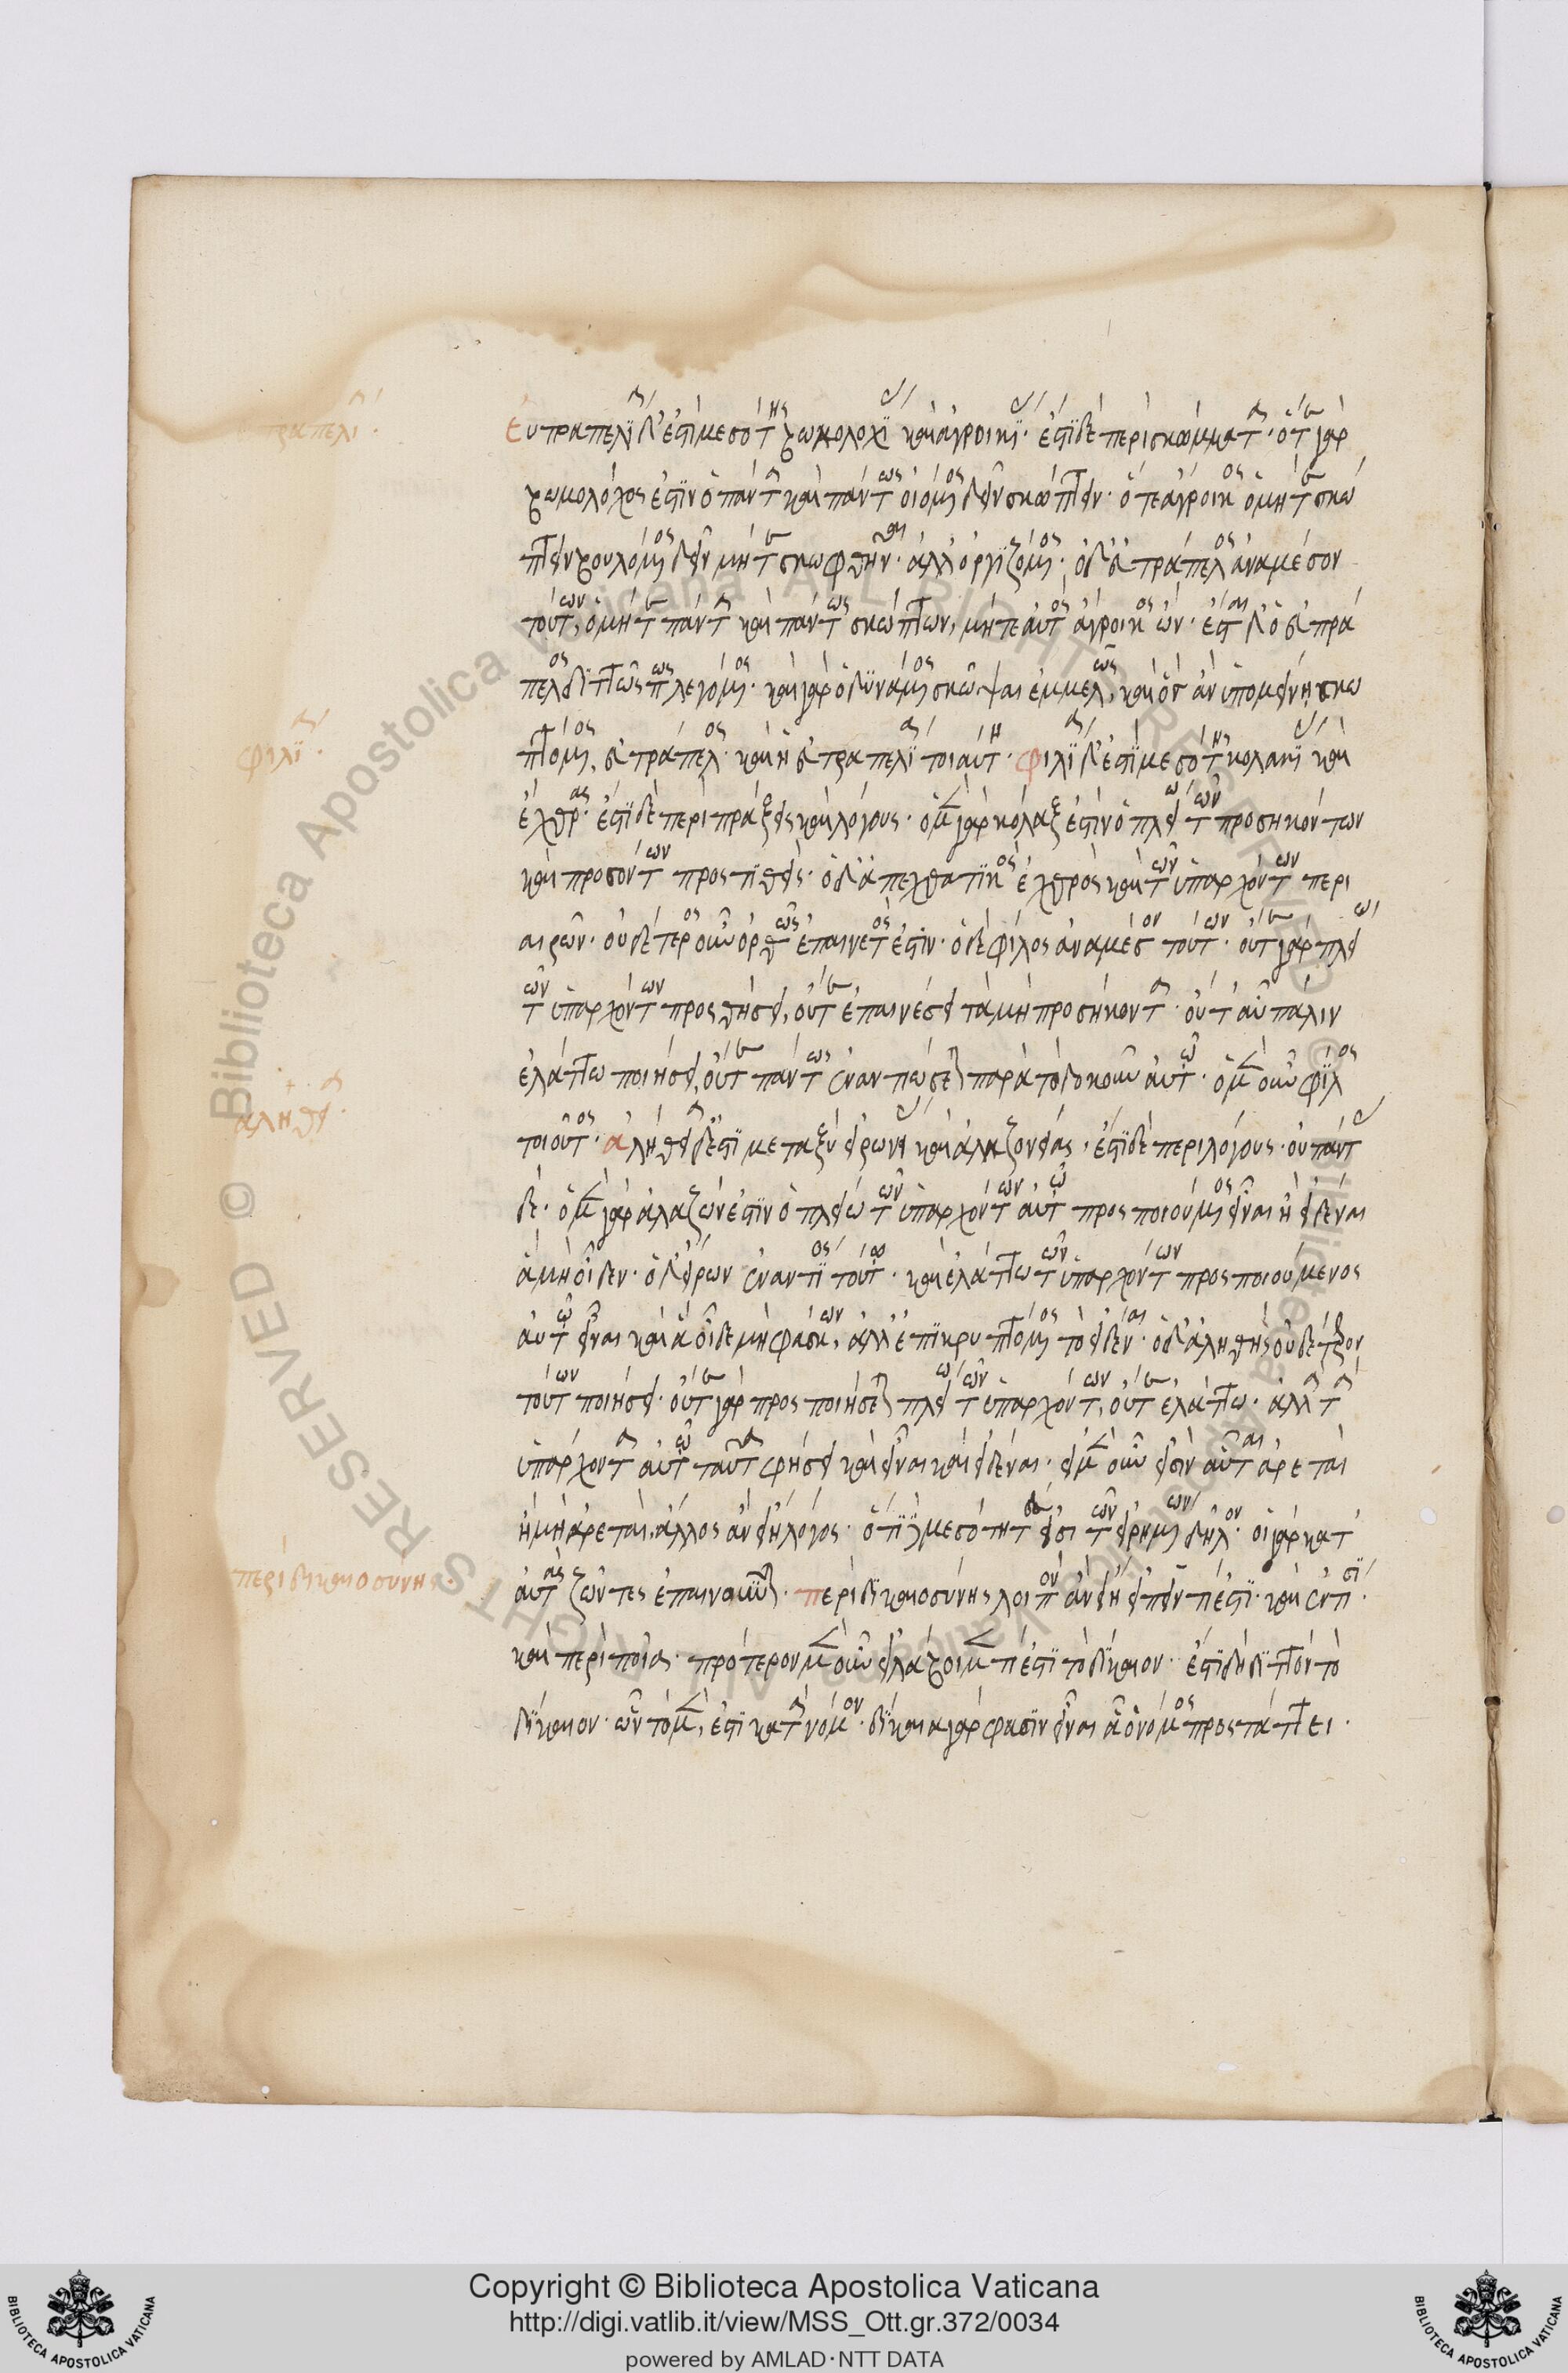 τραπελία.
Εὐτραπελία δ' ἐστὶ μεσότης βωμολοχίας καὶ ἀγροικίας· ἐστὶ δὲ περὶ σκώμματα· ὅτε γὰρ
βωμολόχος ἐστὶν ὁ πάντα καὶ πάντως οἰόμενος δεῖν σκώπτειν· ὅ τε ἄγροικος ὁ μήτε σκώ
πτειν βουλόμενος δεῖν μήτε σκωφθῆναι· ἀλλ' ὀργιζόμενος· ὁ δ' εὐτράπελος ἀναμέσον
τούτων, ὁ μήτε πάντα καὶ πάντως σκώπτων, μήτε αὐτὸς ἄγροικος ὤν· ἔσται δ' ὁ εὐτρά
πελος διττῶς πως λεγόμενος· καὶ γὰρ ὁ δυνάμενος σκῶψαι ἐμμελῶς, καὶ ὃς ἂν ὑπομείνῃ σκω
φιλία.
πτόμενος, εὐτράπελος· καὶ ἡ εὐτραπελία τοιαύτη· φιλία δ' ἐστὶ μεσότης κολακείας καὶ
ἔχθρας· ἐστὶ δὲ περὶ πράξεις καὶ λόγους· ὁ μὲν γὰρ κόλαξ ἐστὶν ὁ πλείω τῶν προσηκόντων
καὶ προσόντων προστιθείς· ὁ δ' ἀπεχθητικὸς ἐχθρὸς καὶ τῶν ὑπαρχόντων περι
αιρῶν· οὐδέτερος οὖν ὀρθῶς ἐπαινετός ἐστιν· ὁ δὲ φίλος ἀναμέσον τούτων· οὔτε γὰρ πλείω
τῶν ὑπαρχόντων προσθήσει, οὔτε ἐπαινέσει τὰ μὴ προσήκοντα· οὔτ' αὖ πάλιν
ἐλάττω ποιήσει, οὔτε πάντως ἐναντιώσεται παρὰ τὸ δοκοῦν αὐτῷ· ὁ μὲν οὖν φίλος
ἀλήθεια.
τοιοῦτος· ἀλήθεια δ' ἐστὶ μεταξὺ εἰρωνείας καὶ ἀλαζονείας· ἐστὶ δὲ περὶ λόγους· οὐ πάντας
δέ· ὁ μὲν γὰρ ἀλαζών ἐστιν ὁ πλείω τῶν ὑπαρχόντων αὐτῷ προσποιούμενος εἶναι ἢ εἰδέναι
ἃ μὴ οἶδεν· ὁ δ' εἴρων ἐναντίος τούτῳ· καὶ ἐλάττω τῶν ὑπαρχόντων προσποιούμενος
αὐτῷ εἶναι καὶ ἃ οἶδε μὴ φάσκων, ἀλλ' ἐπικρυπτόμενος τὸ εἰδέναι· ὁ δ' ἀληθὴς οὐδέτερον
τούτων ποιήσει· οὔτε γὰρ προσποιήσεται πλείω τῶν ὑπαρχόντων, οὔτε ἐλάττω· ἀλλὰ τὰ
ὑπάρχοντα αὑτῷ ταῦτα φήσει καὶ εἶναι καὶ εἰδέναι· εἰ μὲν οὖν εἰσὶν αὗται ἀρεταὶ
ἢ μὴ ἀρεταί, ἄλλος ἂν εἴη λόγος· ὅτι δὲ μεσότητές εἰσι τῶν εἰρημένων δῆλον· οἱ γὰρ κατ'
περὶ δικαιοσύνης.
αὐτὰς ζῶντες ἐπαινοῦνται· περὶ δικαιοσύνης λοιπὸν ἂν εἴη εἰπεῖν τί ἐστί· καὶ ἐν τίσι·
καὶ περὶ ποῖα· πρότερον μὲν οὖν εἰ λάβοιμεν τί ἐστὶ τὸ δίκαιον· ἐστὶ δὴ διττὸν τὸ
δίκαιον· ὧν τὸ μέν, ἐστὶ κατὰ νόμον· δίκαια γάρ φασιν εἶναι ἃ ὁ νόμος προστάττει.
Copyright © Biblioteca Apostolica Vaticana
http://digi.vatlib.it/view/MSS_Ott.gr.372/0034
powered by AMLAD·NTT DATA